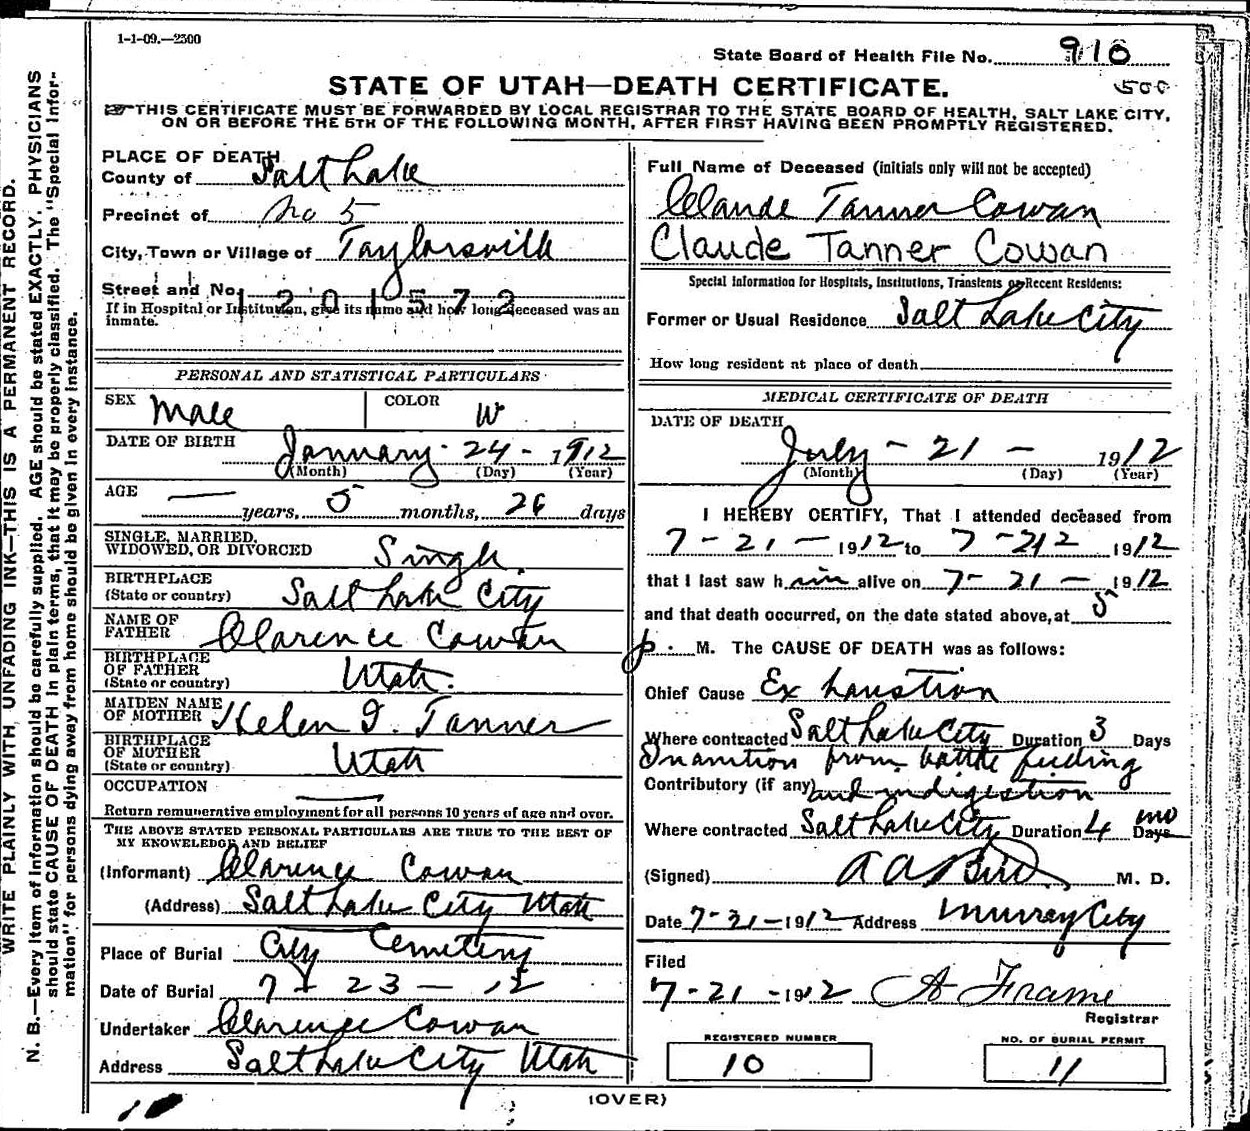 1-1-09.—2500
State Board of Health File No. 910
500
STATE OF UTAH—DEATH CERTIFICATE.
THIS CERTIFICATE MUST BE FORWARDED BY LOCAL REGISTRAR TO THE STATE BOARD OF HEALTH, SALT LAKE CITY,
ON OR BEFORE THE 5TH OF THE FOLLOWING MONTH, AFTER FIRST HAVING BEEN PROMPTLY REGISTERED.
WRITE PLAINLY WITH UNFADING INK—THIS IS A PERMANENT RECORD.
N. B.—Every item of information should be carefully supplied. AGE should be stated EXACTLY. PHYSICIANS
should state CAUSE OF DEATH in plain terms, that it may be properly classified. The "Special Infor-
mation" for persons dying away from home should be given in every instance.
PLACE OF DEATH
County of Salt Lake
Precinct of No 5
City, Town or Village of Taylorsville
Street and No.
1201572
If in Hospital or Institution, give its name and how long deceased was an
inmate.
PERSONAL AND STATISTICAL PARTICULARS
SEX Male COLOR W
DATE OF BIRTH January - 24 - 1912
(Month) (Day) (Year)
AGE — years, 5 months, 26 days
SINGLE, MARRIED,
WIDOWED, OR DIVORCED Single
BIRTHPLACE
(State or country) Salt Lake City
NAME OF
FATHER Clarence Cowan
BIRTHPLACE
OF FATHER
(State or country) Utah.
MAIDEN NAME
OF MOTHER Helen I. Tanner
BIRTHPLACE
OF MOTHER
(State or country) Utah
OCCUPATION —
Return remunerative employment for all persons 10 years of age and over.
THE ABOVE STATED PERSONAL PARTICULARS ARE TRUE TO THE BEST OF
MY KNOWELEDGE AND BELIEF
(Informant) Clarence Cowan
(Address) Salt Lake City Utah
Place of Burial City Cemetery
Date of Burial 7 - 23 - 12
Undertaker Clarence Cowan
Address Salt Lake City Utah
Full Name of Deceased (initials only will not be accepted)
Claude Tanner Cowan
Claude Tanner Cowan
Special Information for Hospitals, Institutions, Transients or Recent Residents:
Former or Usual Residence Salt Lake City
How long resident at place of death
MEDICAL CERTIFICATE OF DEATH
DATE OF DEATH
July - 21 - 1912
(Month) (Day) (Year)
I HEREBY CERTIFY, That I attended deceased from
7 - 21 - 1912 to 7 - 212 1912
that I last saw h im alive on 7 - 21 - 1912
and that death occurred, on the date stated above, at 5
p. M. The CAUSE OF DEATH was as follows:
Chief Cause Exhaustion
Where contracted Salt Lake City Duration 3 Days
Inanition from bottle feeding
Contributory (if any) and indigestion
Where contracted Salt Lake City Duration 4 mo Days
(Signed) A A Bird M. D.
Date 7-21-1912 Address Murray City
Filed
7-21-1912 A Frame
Registrar
REGISTERED NUMBER
10
NO. OF BURIAL PERMIT
11
(OVER)